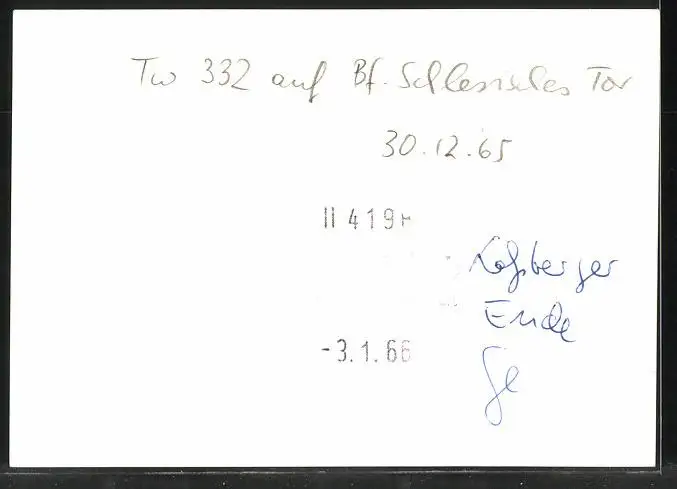 Tw 332 auf Bf. Schlesisches Tor
30.12.65
II 419
Ende
-3.1.66